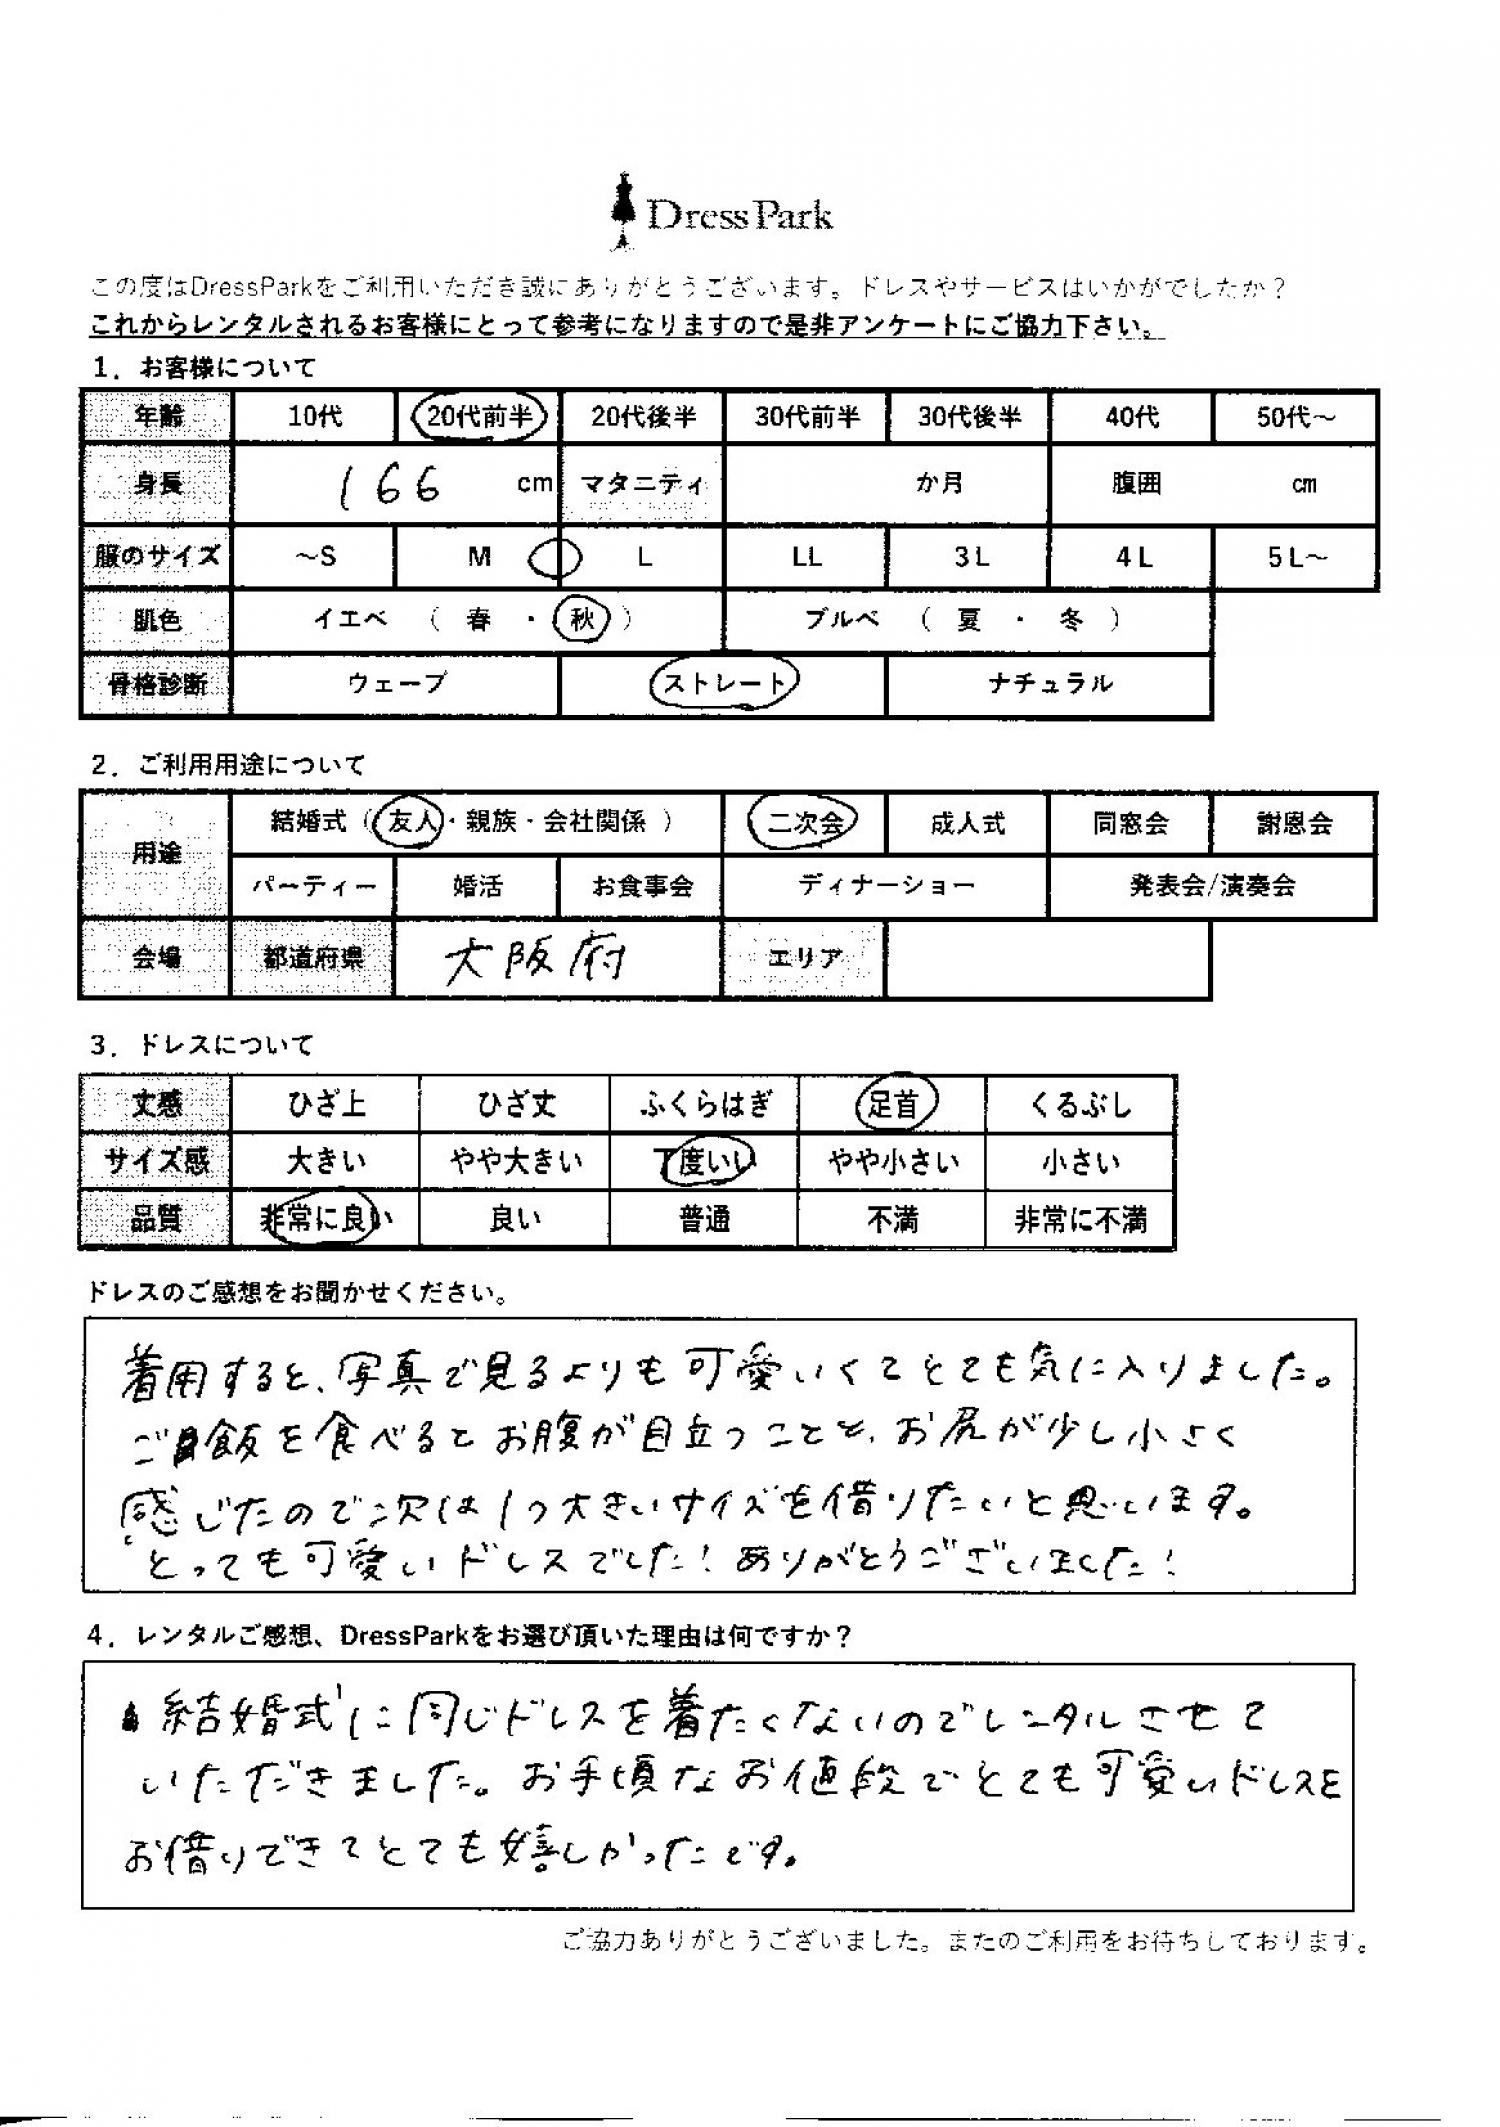 DressPark
この度はDressParkをご利用いただき誠にありがとうございます。ドレスやサービスはいかがでしたか？
これからレンタルされるお客様にとって参考になりますので是非アンケートにご協力下さい。
1．お客様について
年齢 10代 20代前半 20代後半 30代前半 30代後半 40代 50代～
身長 166 cm マタニティ か月 腹囲 cm
服のサイズ ～S M L LL 3L 4L 5L～
肌色 イエベ （ 春 ・ 秋 ） ブルベ （ 夏 ・ 冬 ）
骨格診断 ウェーブ ストレート ナチュラル
2．ご利用用途について
用途 結婚式（友人・親族・会社関係 ） 二次会 成人式 同窓会 謝恩会
パーティー 婚活 お食事会 ディナーショー 発表会/演奏会
会場 都道府県 大阪府 エリア
3．ドレスについて
丈感 ひざ上 ひざ丈 ふくらはぎ 足首 くるぶし
サイズ感 大きい やや大きい 丁度いい やや小さい 小さい
品質 非常に良い 良い 普通 不満 非常に不満
ドレスのご感想をお聞かせください。
着用すると、写真で見るよりも可愛いくてとても気に入りました。
ご飯を食べるとお腹が目立つことと、お尻が少し小さく
感じたので次は1つ大きいサイズを借りたいと思います。
とっても可愛いドレスでした！ありがとうございました！
4．レンタルご感想、DressParkをお選び頂いた理由は何ですか？
結婚式に同じドレスを着たくないのでレンタルさせて
いただきました。お手頃なお値段でとても可愛いドレスを
お借りできてとても嬉しかったです。
ご協力ありがとうございました。またのご利用をお待ちしております。